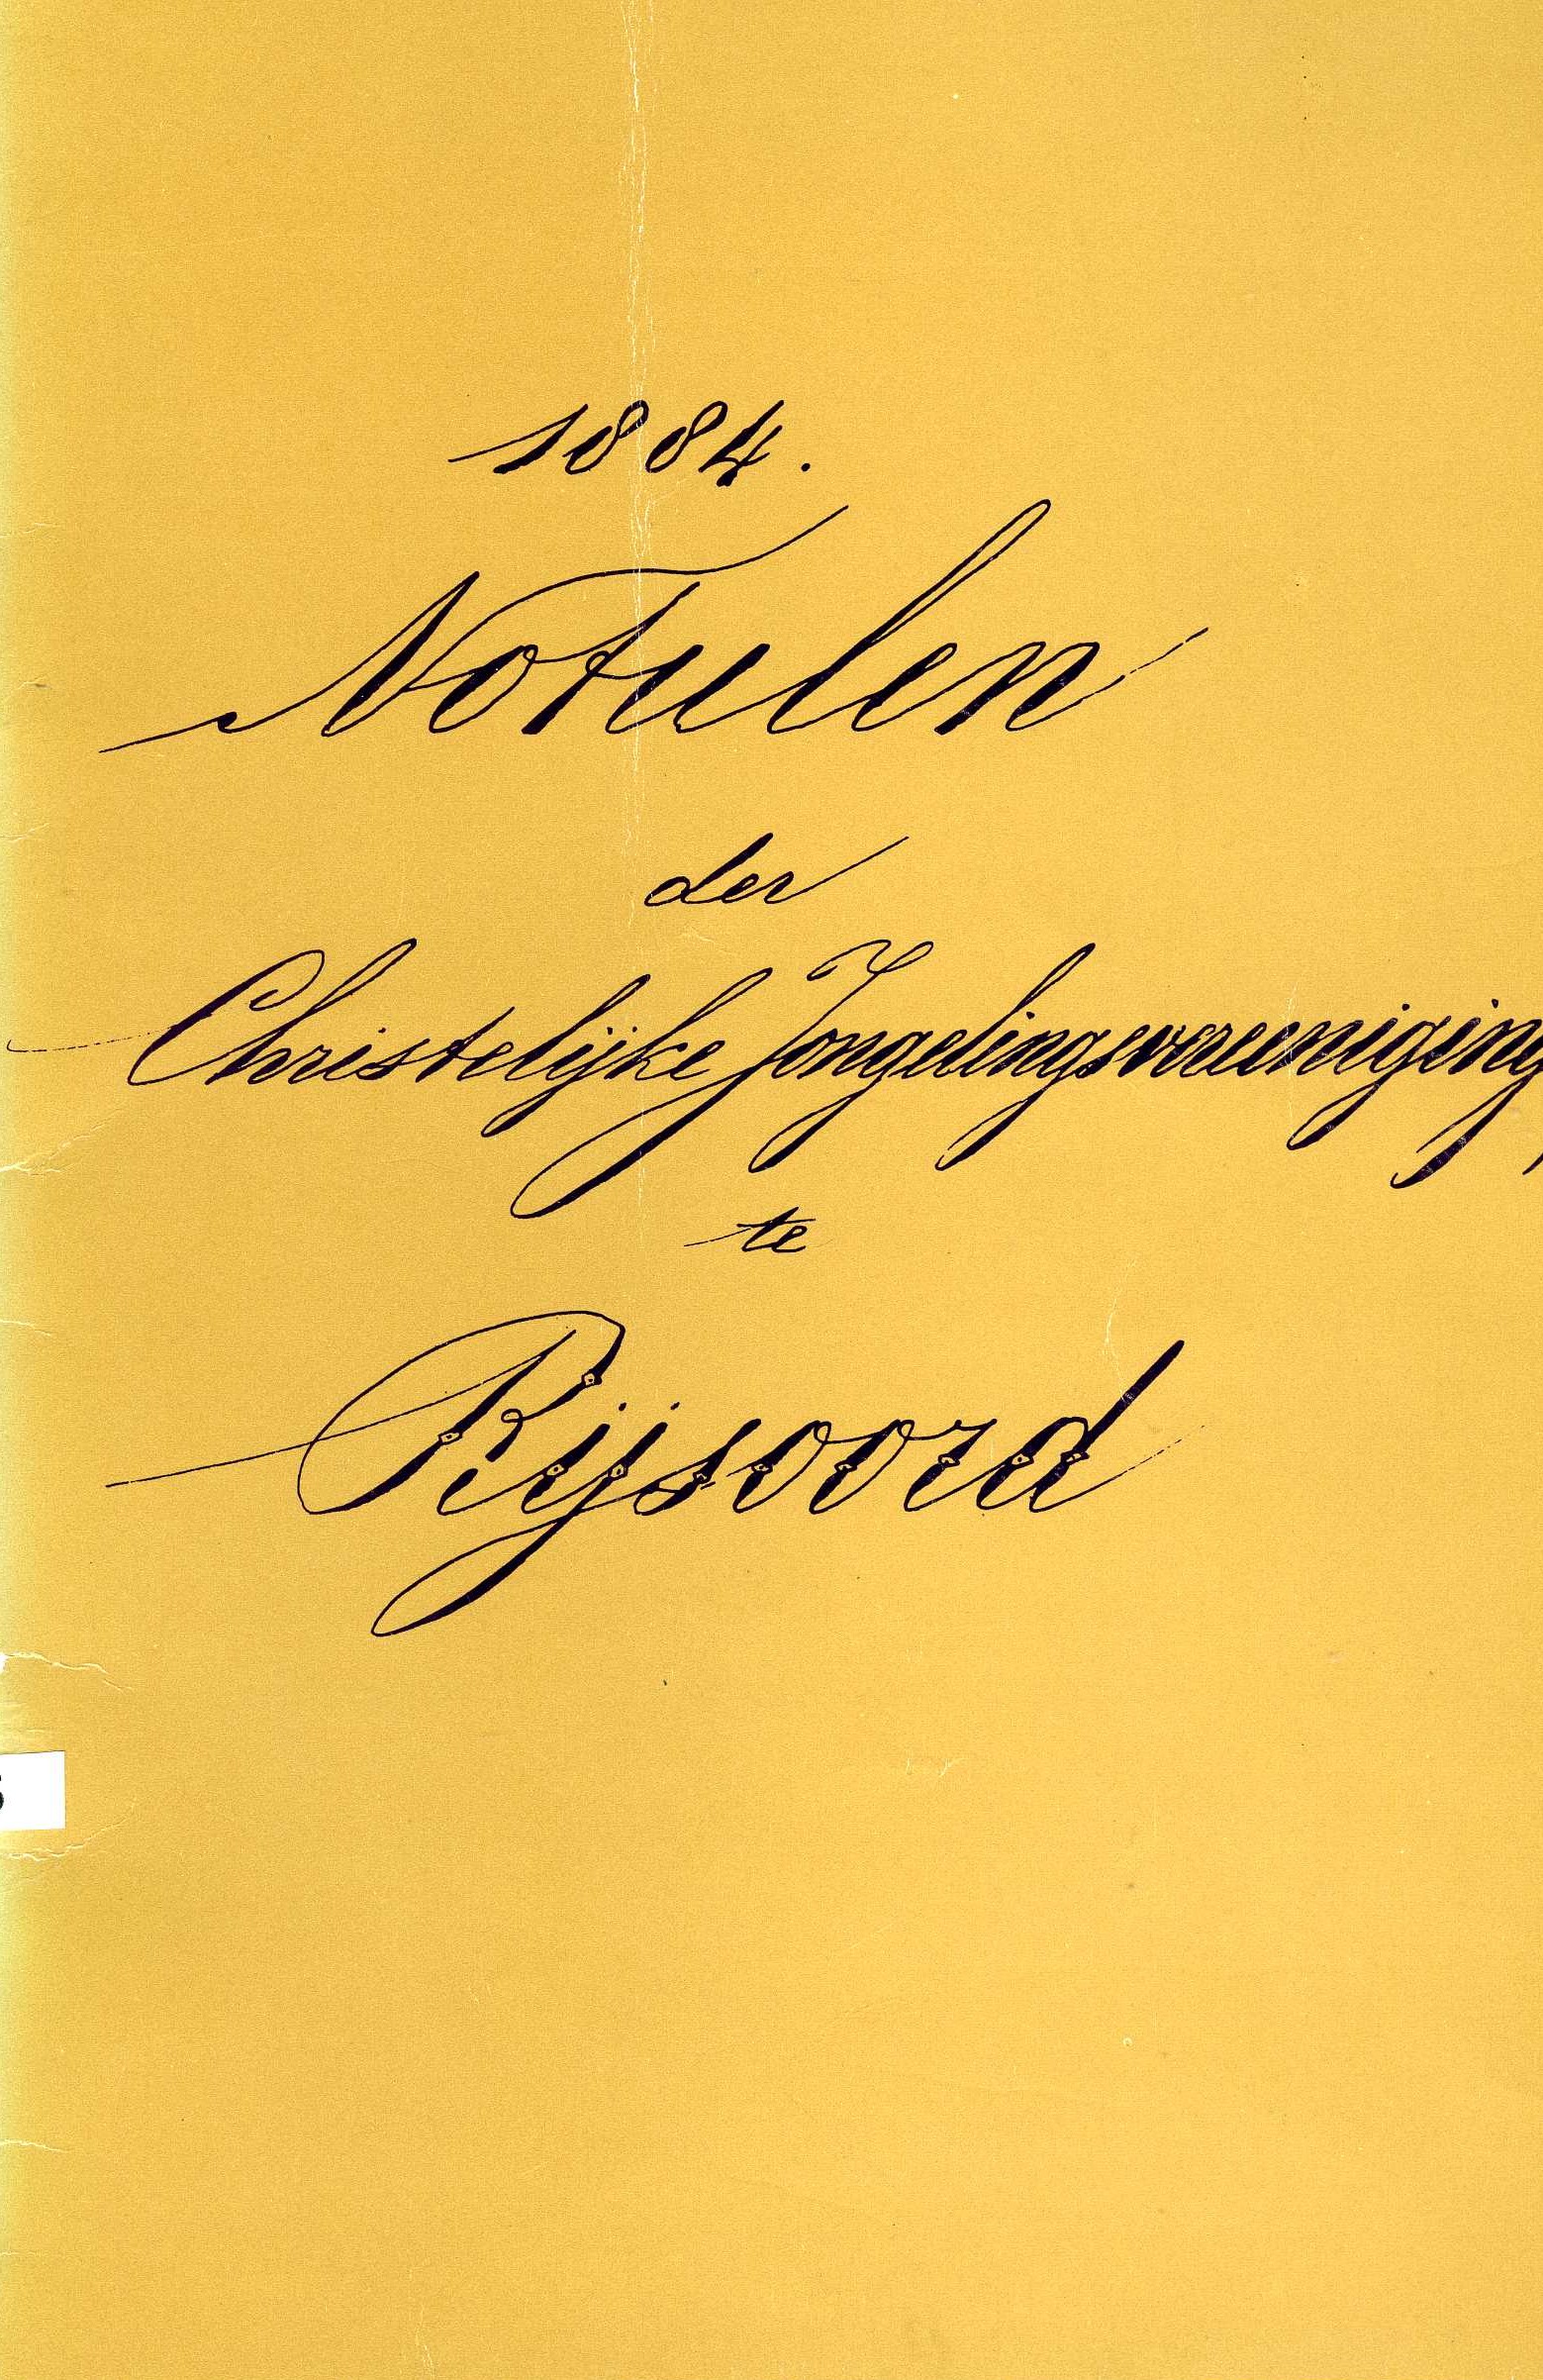 1884.
Notulen
der
Christelijke Jongelingsvereeniging,
te
Rijsoord